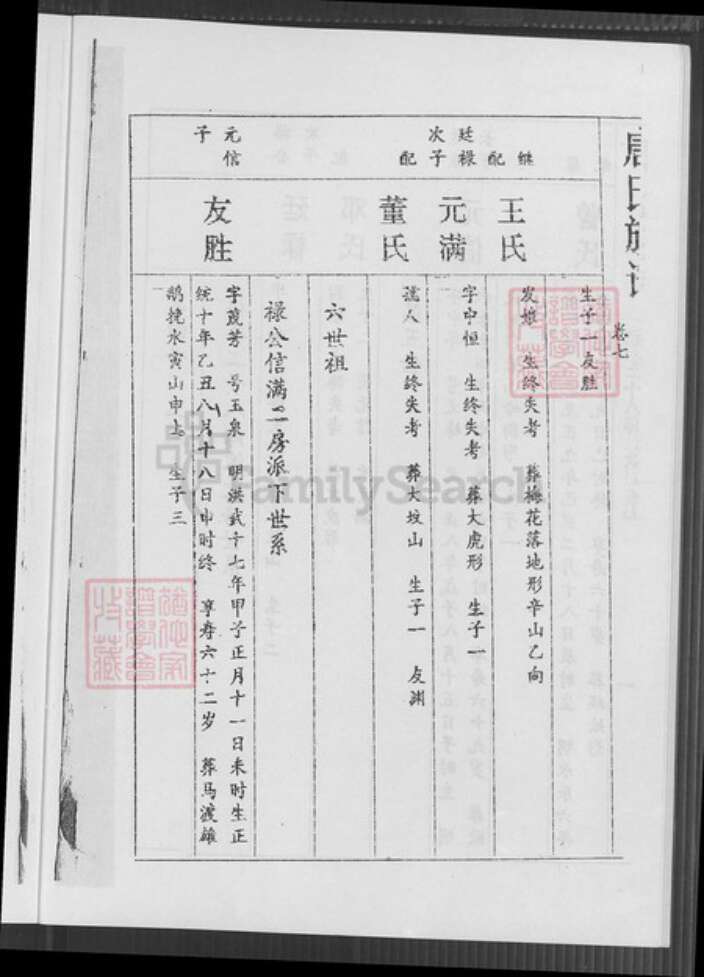 唐氏族谱
卷七
生子一 友胜
继配
王氏
发雄 生终失考 葬梅花落地形辛山乙向
廷禄次子
元满
字中恒 生终失考 葬大虎形 生子一
配
董氏
孺人 生终失考 葬大坟山 生子一 友渊
六世祖
禄公信满二房派下世系
元信子
友胜
字茂芳 号玉泉 明洪武十七年甲子正月十一日未时生正
统十年乙丑八月十八日申时终 享寿六十二岁 葬马渡雄
鹅挽水寅山申向 生子三
FamilySearch